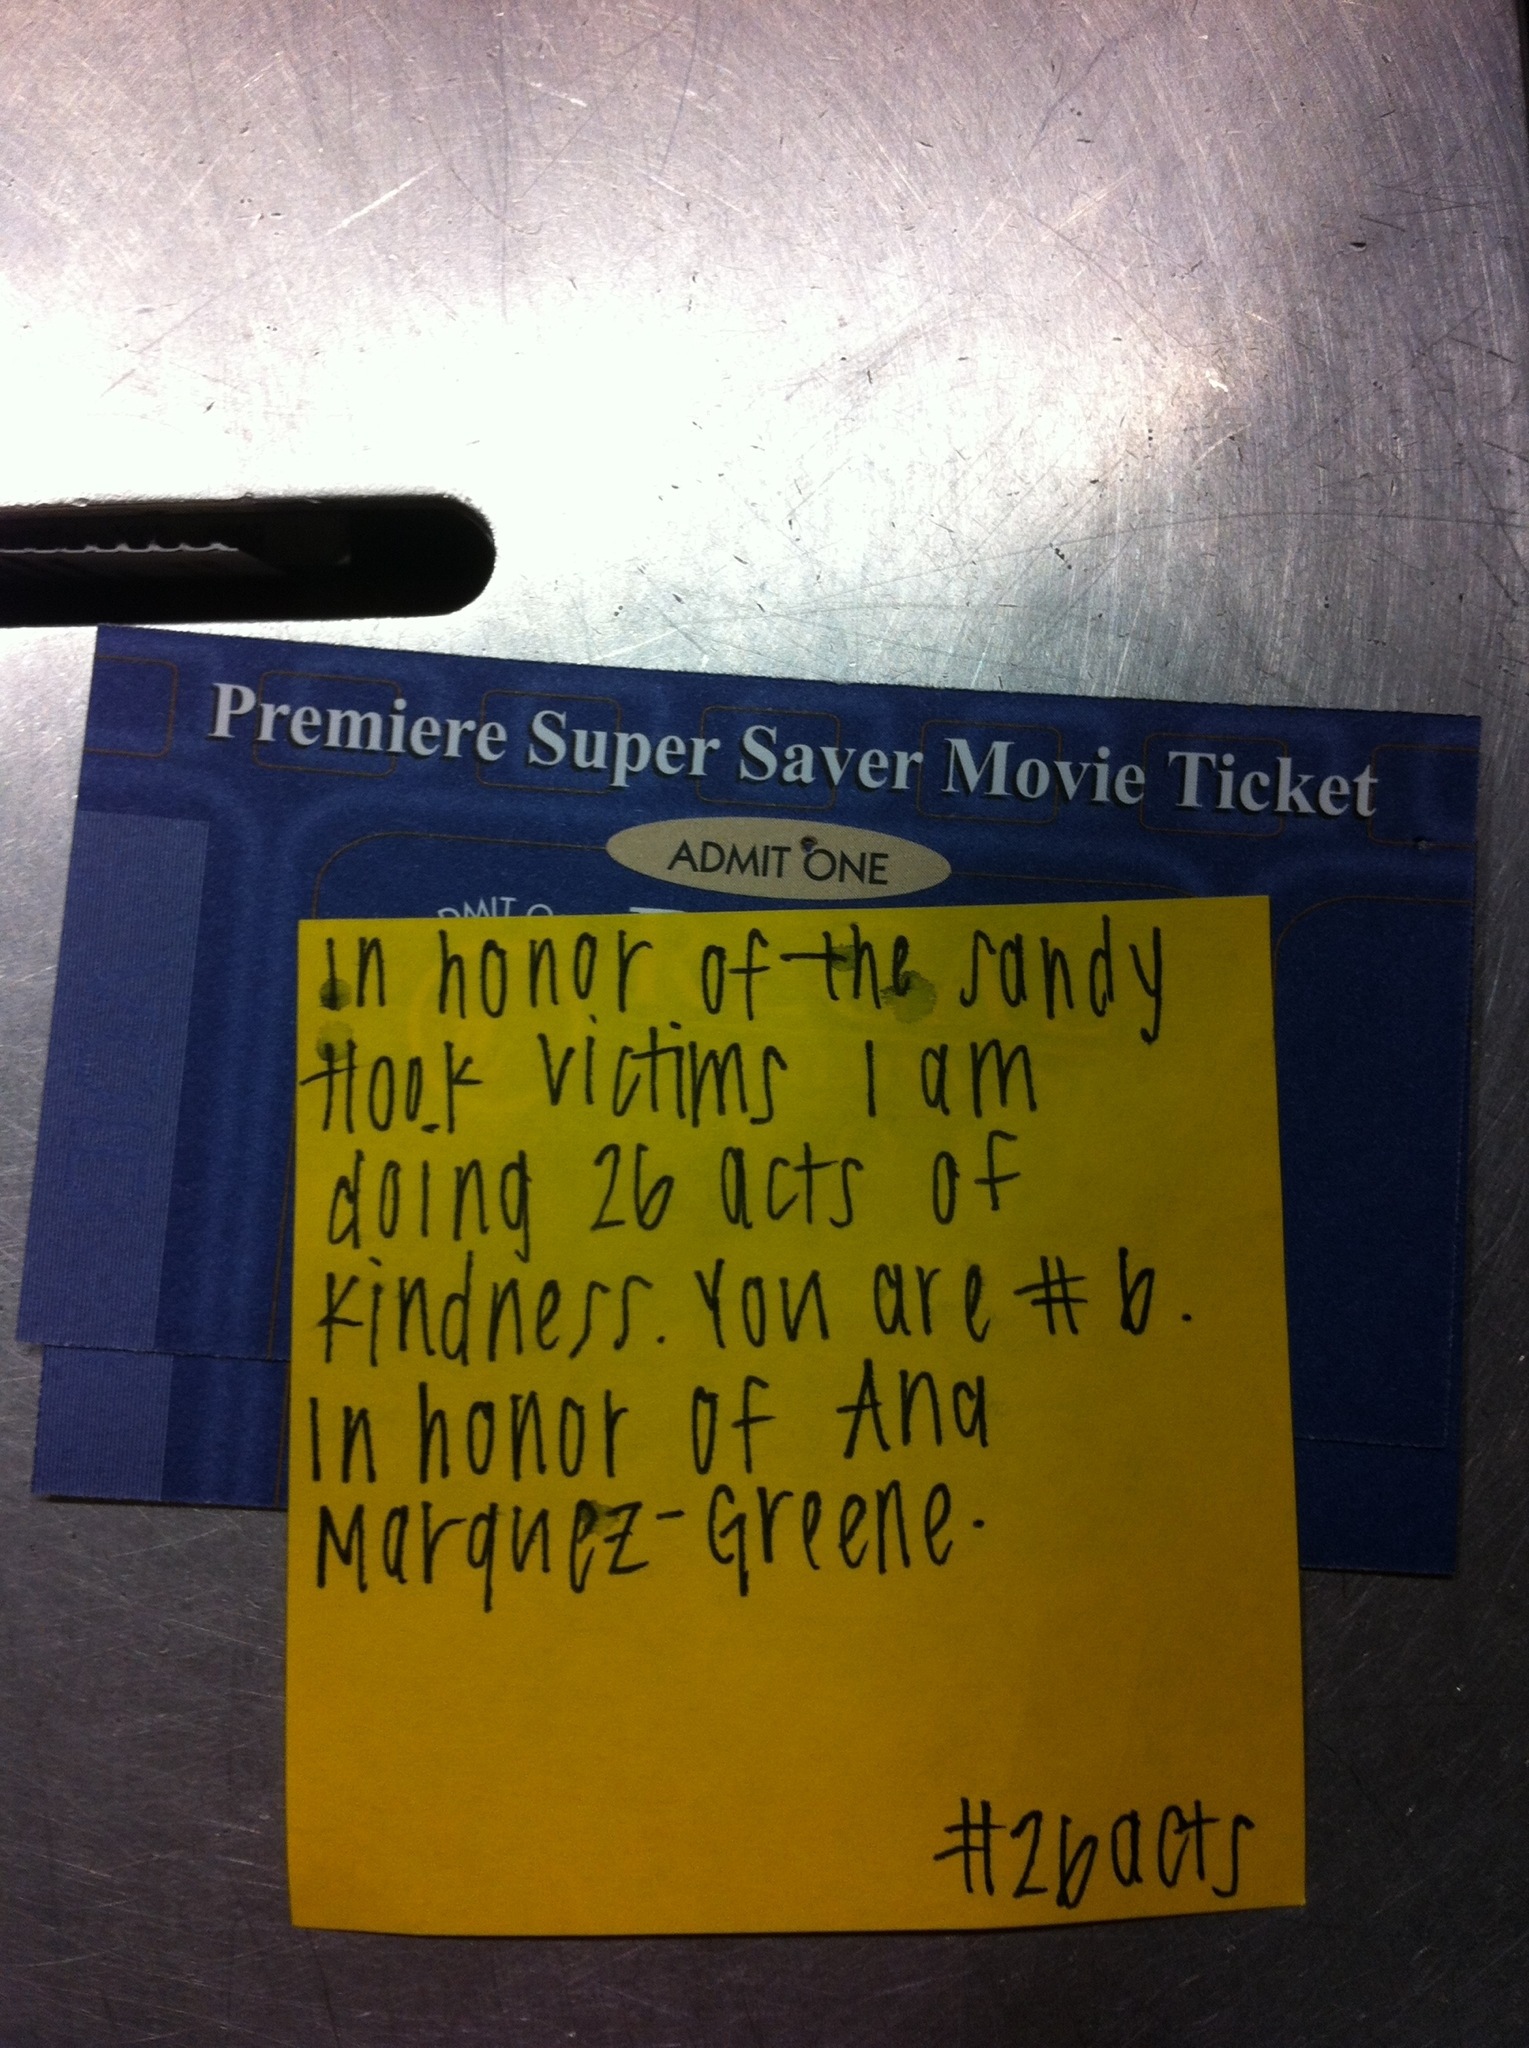 Premiere Super Saver Movie Ticket
ADMIT ONE
In honor of the sandy
Hook victims I am
doing 26 acts of
kindness. You are #6.
In honor of Ana
Marquez-Greene.
#26acts